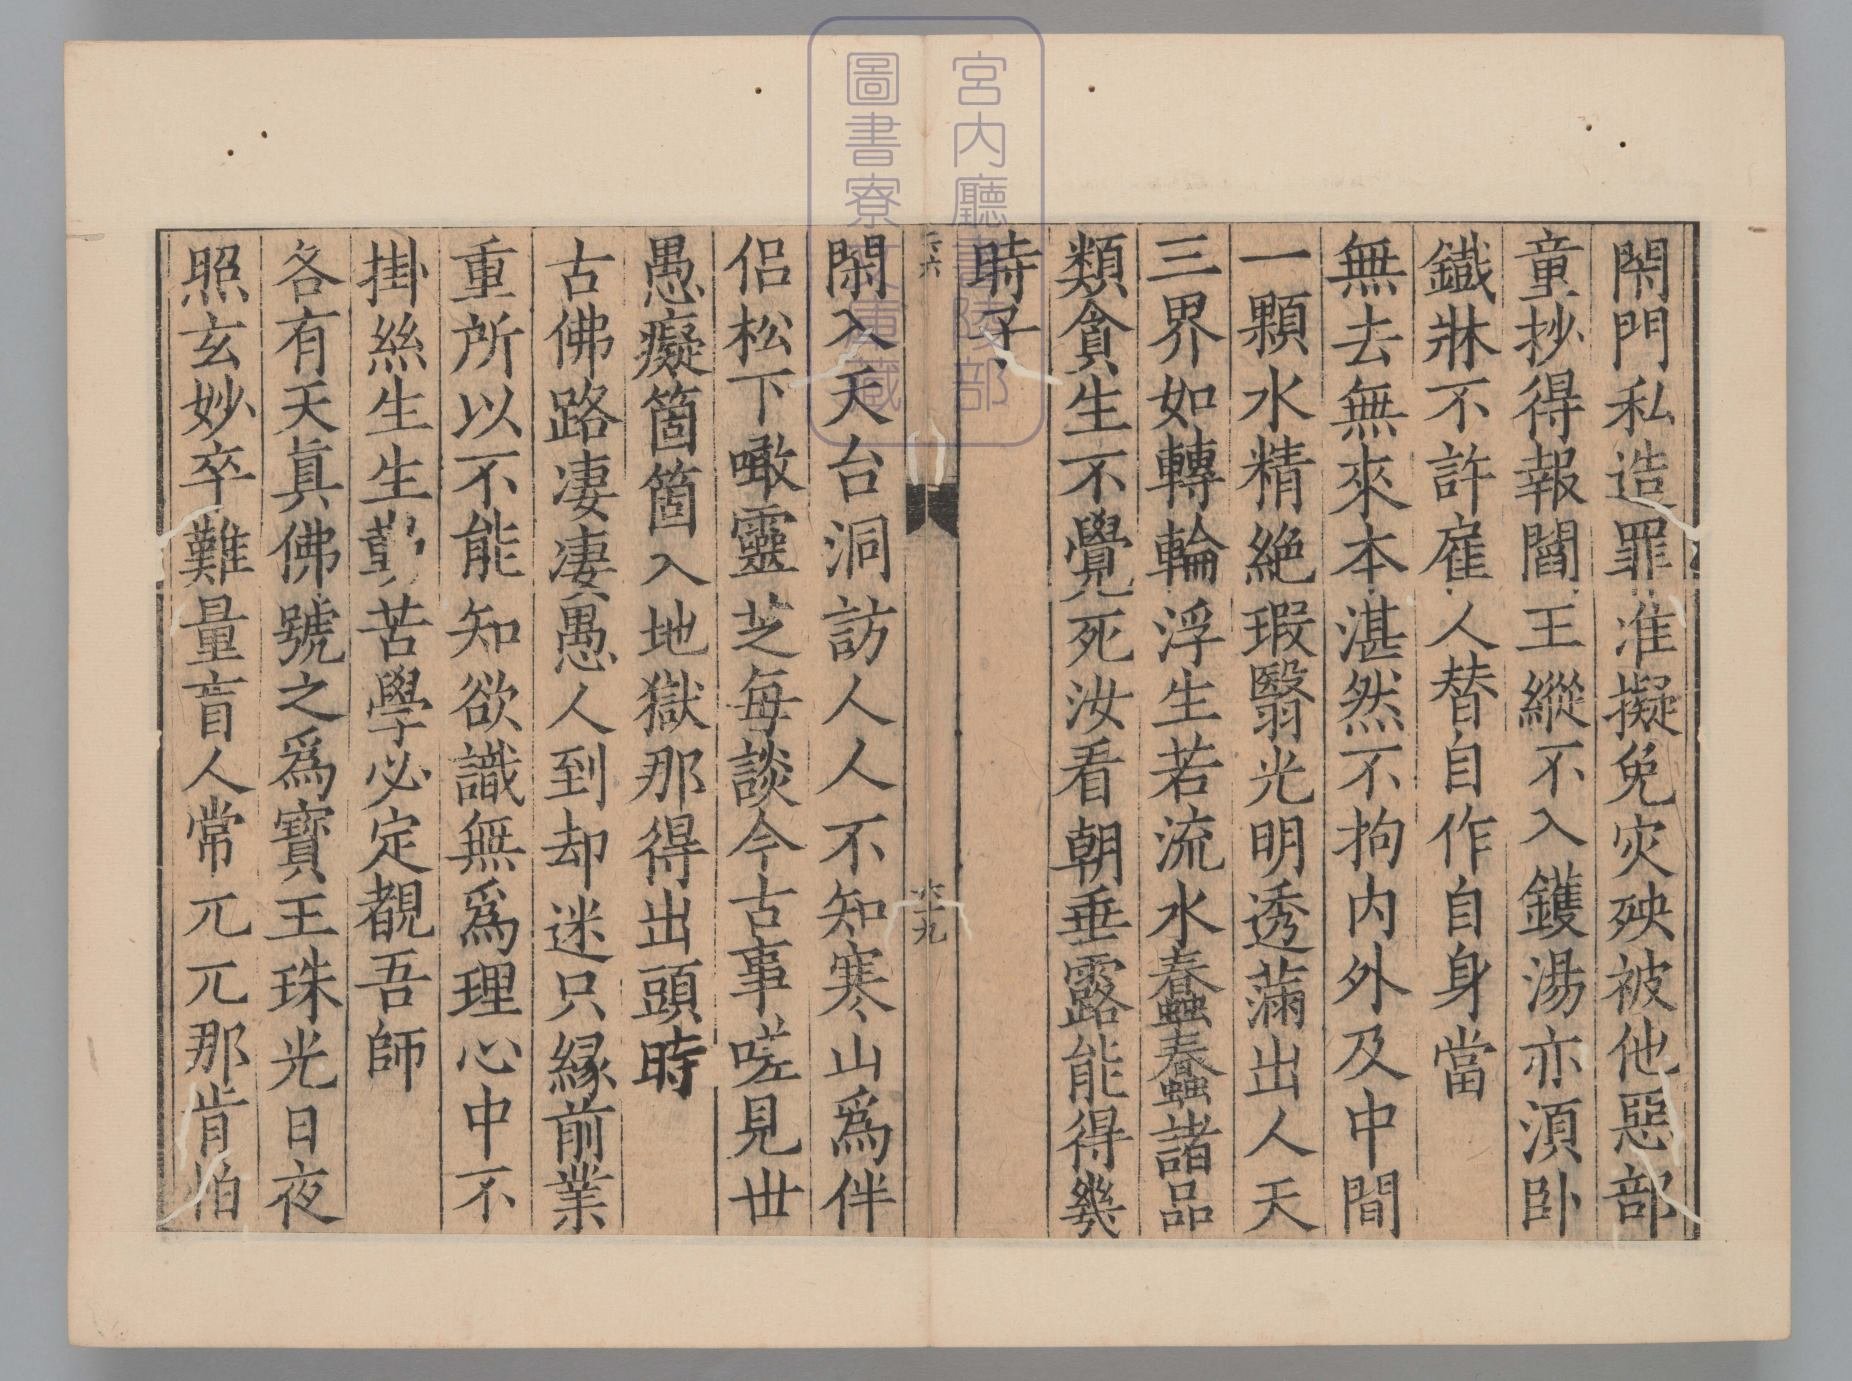 閑門私造罪准擬免灾殃被他惡部
童抄得報閻王縱不入鑊湯亦湏卧
鐵牀不許雇人替自作自身當
無去無來本湛然不拘内外及中間
一顆水精絶瑕翳光明透滿出人天
三界如轉輪浮生若流水蠢蠢諸品
類貪生不覺死汝看朝垂露能得幾
時子
六九
閑入天台洞訪人人不知寒山爲伴
侣松下噉靈芝每談今古事嗟見世
愚癡箇箇入地獄那得出頭時
古佛路凄凄愚人到却迷只縁前業
重所以不能知欲識無爲理心中不
掛絲生生勤苦學必定覩吾師
各有天真佛號之爲寶王珠光日夜
照玄妙卒難量盲人常兀兀那肯怕
宮内廳書陵部
圖書寮文庫藏